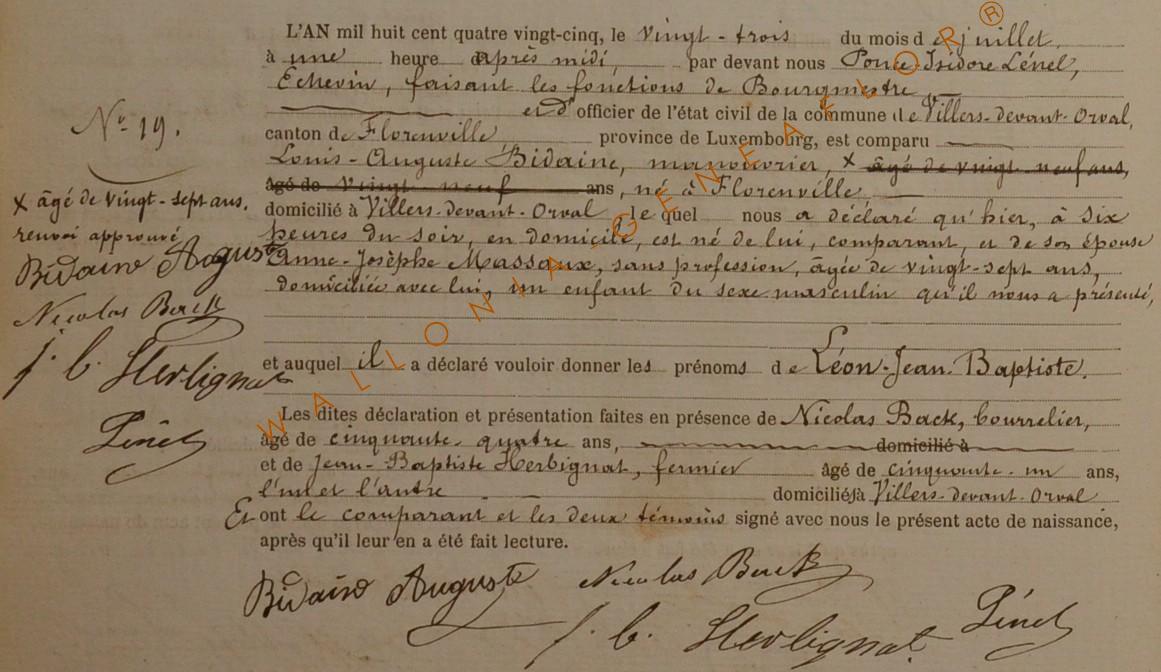 L'AN mil huit cent quatre vingt-cinq, le vingt-trois du mois de juillet,
à une heure après midi, par devant nous Ponce-Isidore Lénel,
Echevin, faisant les fonctions de Bourgmestre
et d'officier de l'état civil de la commune de Villers-devant-Orval,
canton de Florenville province de Luxembourg, est comparu
Louis-Auguste Bidaine, manouvrier, X âgé de vingt neuf ans,
âgé de vingt neuf ans, né à Florenville
domicilié à Villers-devant-Orval lequel nous a déclaré qu'hier, à six
heures du soir, en domicile, est né de lui, comparant, et de son épouse
Anne-Josèphe Massaux, sans profession, âgée de vingt-sept ans,
domiciliée avec lui, un enfant du sexe masculin qu'il nous a présenté,
et auquel il a déclaré vouloir donner les prénoms de Léon-Jean-Baptiste.
Les dites déclaration et présentation faites en présence de Nicolas Back, bourrelier,
âgé de cinquante-quatre ans, domicilié à
et de Jean-Baptiste Herbignat, fermier âgé de cinquante-un ans,
l'un et l'autre domiciliés à Villers-devant-Orval
Et ont le comparant et les deux témoins signé avec nous le présent acte de naissance,
après qu'il leur en a été fait lecture.
Bidaine Auguste Nicolas Back
j. b. Herbignat Lénel
N° 19.
X âgé de vingt-sept ans.
renvoi approuvé
Bidaine Auguste
Nicolas Back
j. b. Herbignat
Lénel
WALLONIA GENEAFLOR ®